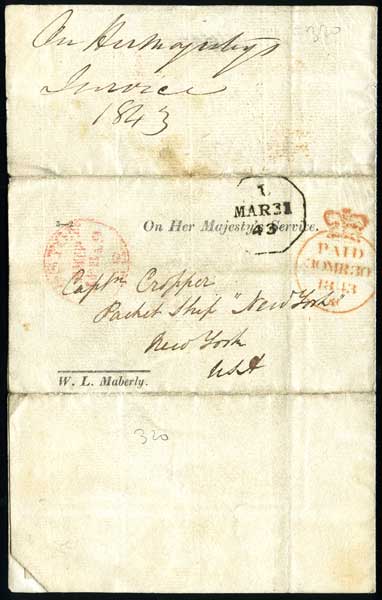 On Her Majesty's
Service
1843
320
L
MAR 31
43
On Her Majesty's Service.
PAID
30MR30
1843
Captn Cropper
Packet Ship "New York"
New York
USA
W. L. Maberly.
320